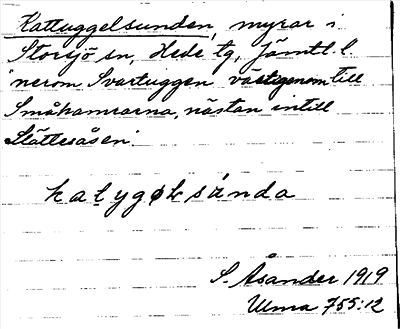 Kattuggelsunden, myrar i
Storsjö sn, Hede tg, Jämtl. l.
"nerom Svartuggen västigenom till
Småhamrarna, nästan intill
Slättesåsen".
katygøłsúnda
S. Åsander 1919
Ulma 755:12